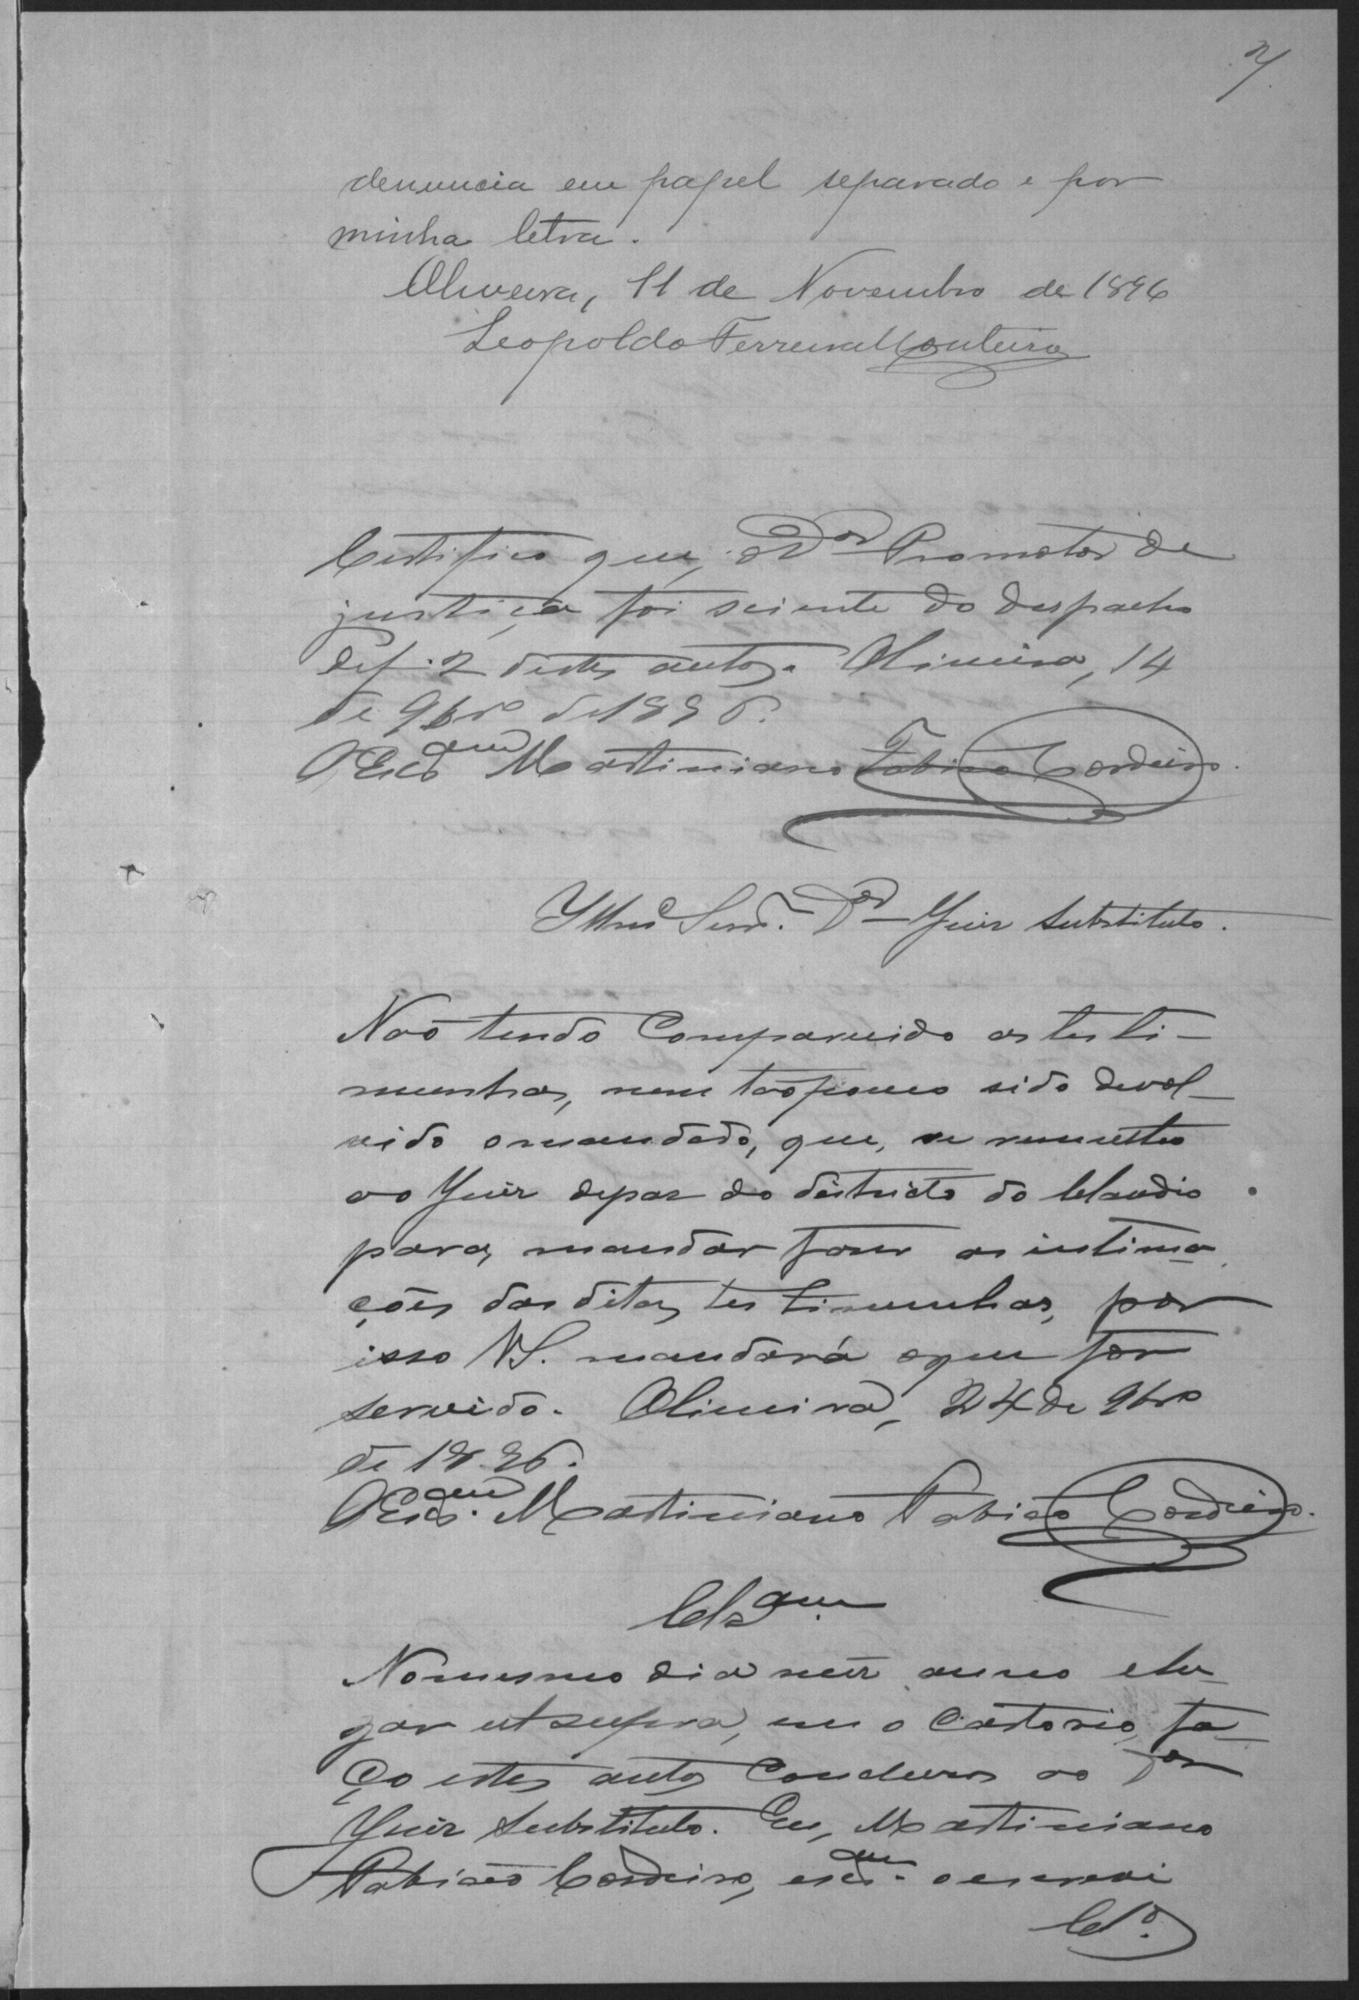 denuncia em papel separado e por
minha letra.
Oliveira, 11 de Novembro de 1896
Leopoldo Ferreira Monteiro
Certifico que, o Dor Promotor de
justiça foi sciente do despacho
de f. 2 destes autos. Oliveira, 14
de 9bro de 1896.
O Escam Martiniano Fabião Cordeiro.
Illmo Senr. Dor Juiz Substituto.
Não tendo Comparecido as testi-
munhas, nem tão pouco sido devol-
vido o mandado, que, se remetteo
ao Juiz de paz do districto do Claudio
para, mandar fazer as intima
ções das ditas testimunhas, por
isso V.S. mandará o que for
servido. Oliveira, 24 de 9bro
de 1896.
O Escam. Martiniano Fabião Cordeiro.
Clsam.
No mesmo dia mez anno e lu-
gar ut supra, em o Cartorio, fa-
ço estes autos Conclusos ao Dor
Juiz Substituto. Eu, Martiniano
Fabião Cordeiro, escam. o escrevi
Clo.